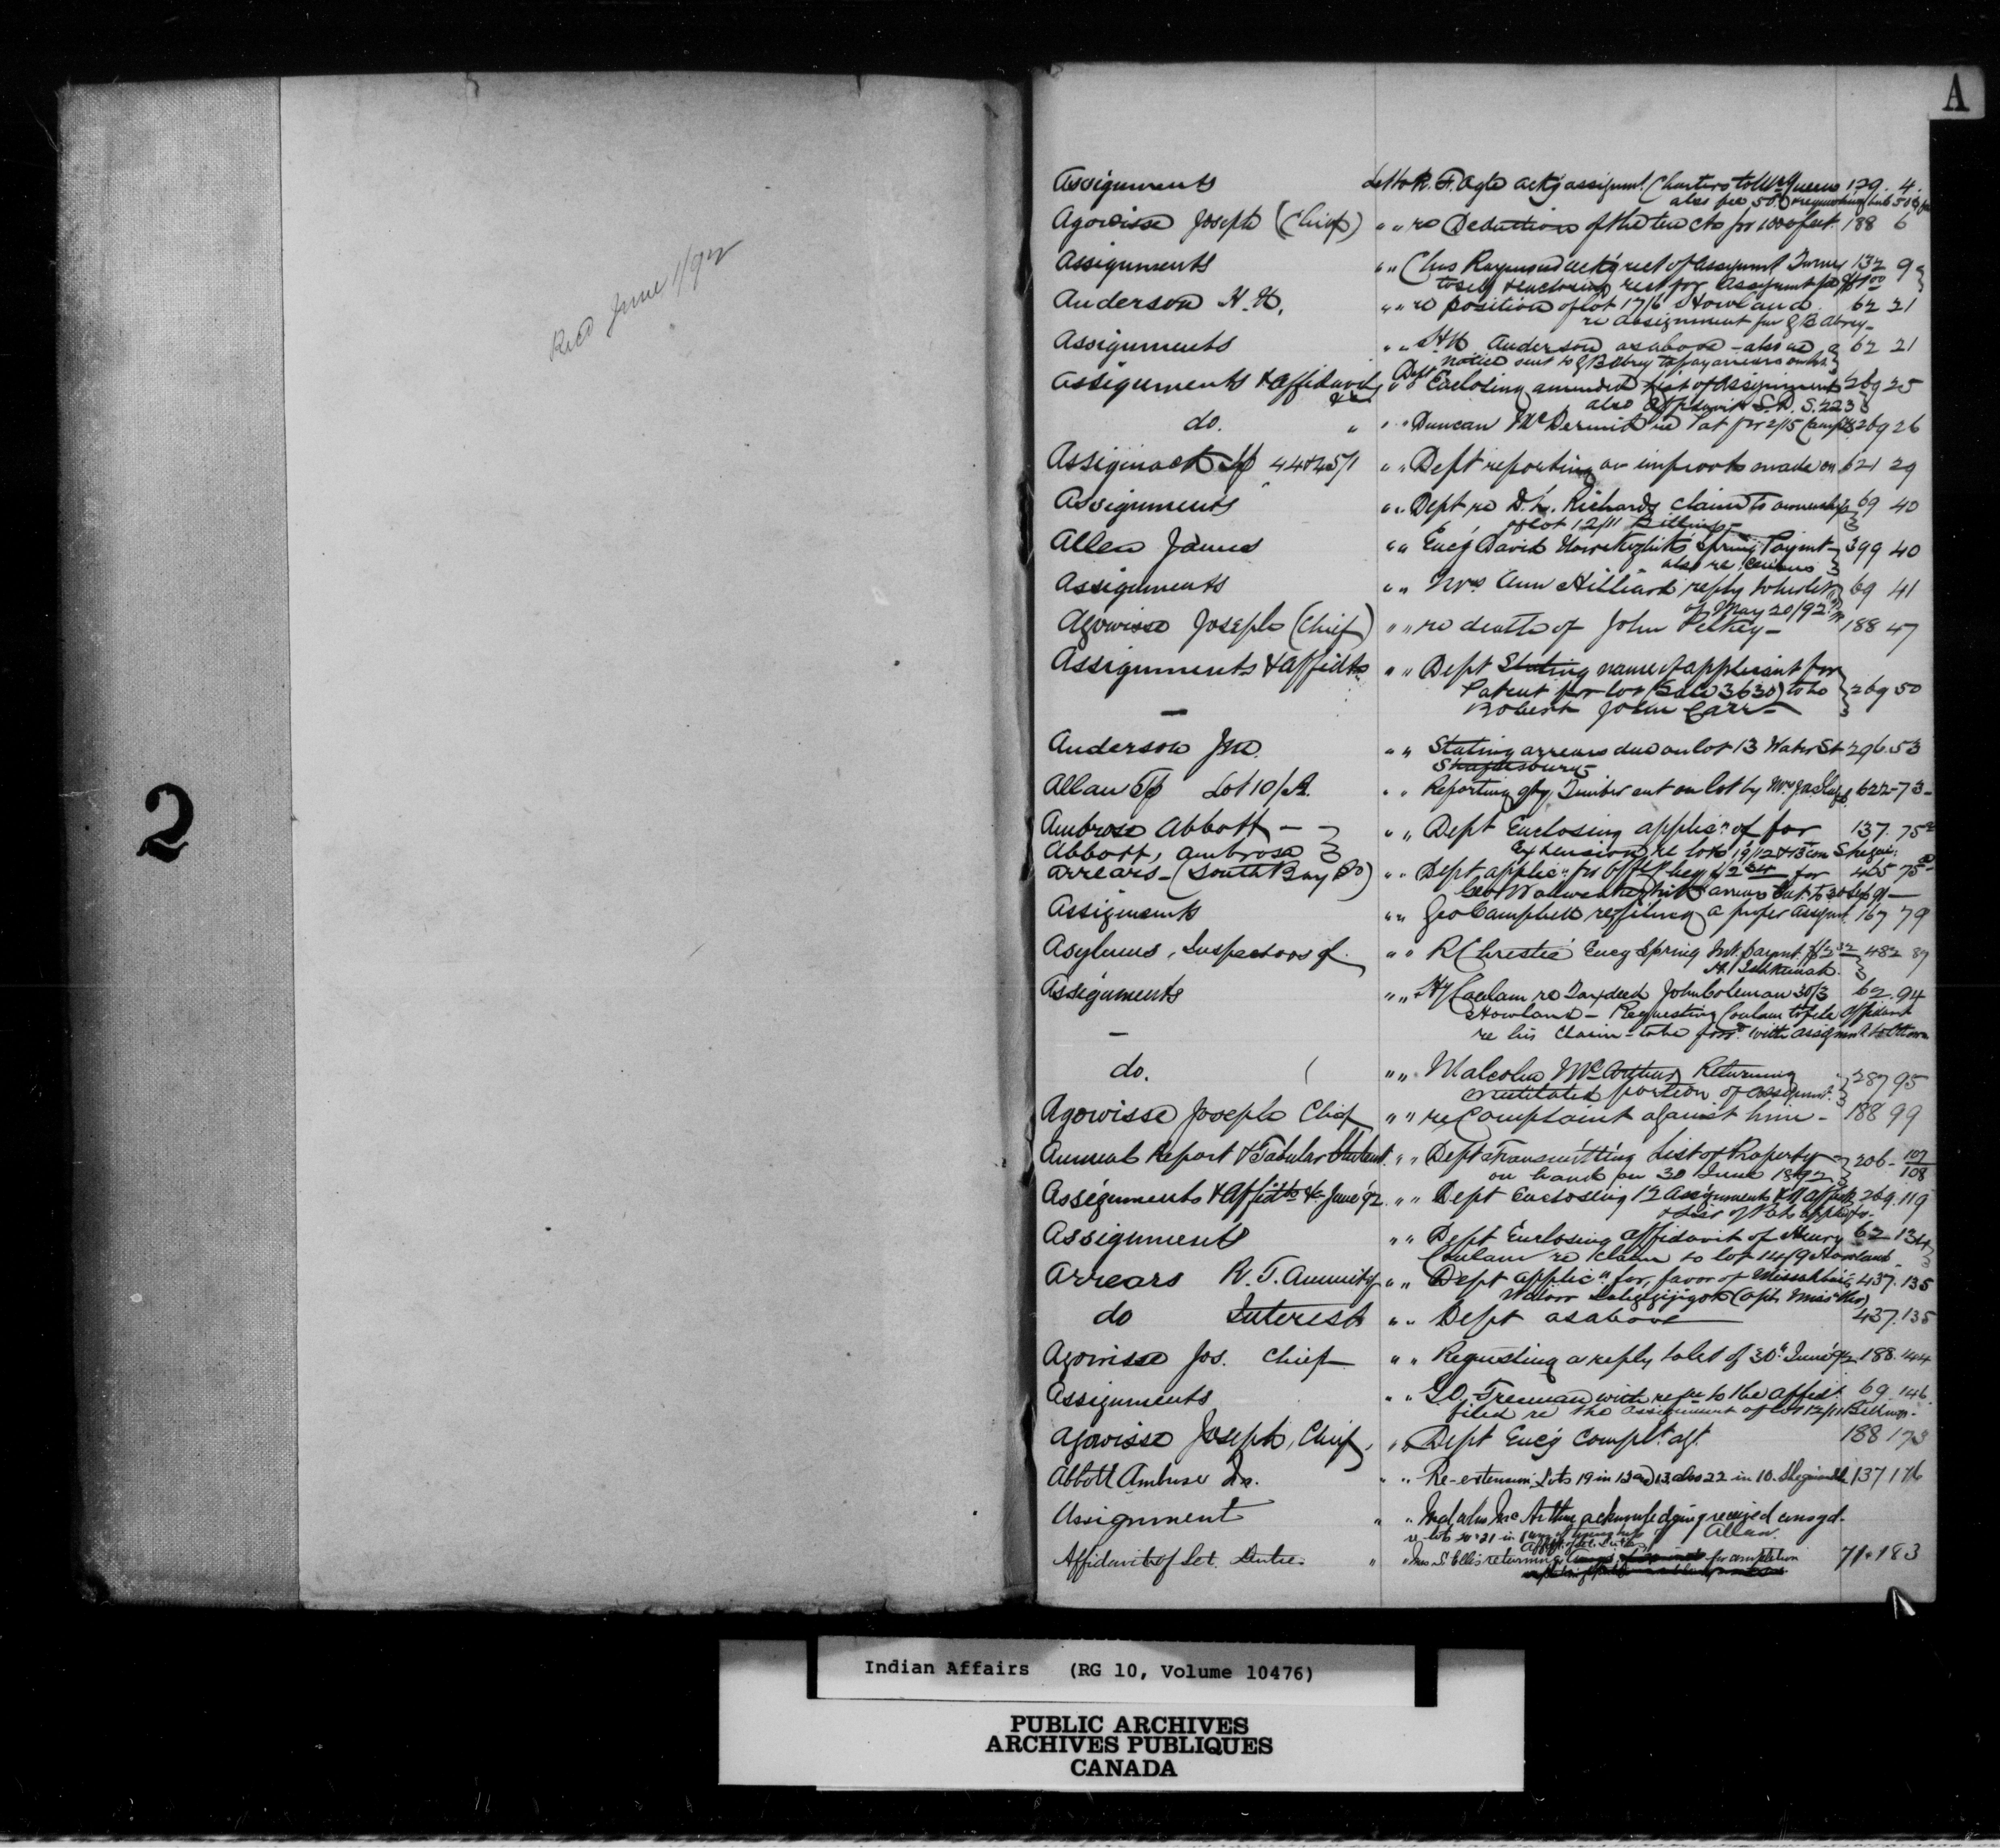 2
Recd June 1/92
A
Assignments Let to R. F. Ogle ackg assignmt. Charters to McQueen 179. 4.
also fee 50¢
Agowisse Joseph (Chief) " " re Deduction of the ten cts for 1000 feet. 188 6
Assignments " " Chas Raymond ackg rect of assignmt Turner 132 9
to self & enclosing rect for assignmt fee $1.00
Anderson H. H. " " re position of lot 17/6 Howland 62 21
re assignment fm G B Abrey
Assignments " " H H Anderson as above - also re 62 21
notice sent to G B Abrey to pay arrears on lots
Assignments & Affidavits &c " " Dept Enclosing amended list of Assignments 269 25
also affidavit S.D. S. 223
do. " " " Duncan McDermid re Pat for 2/15 Camp 269 26
Assiginack Tp 44 & 45/1 " " Dept reporting on improts made on 621 29
Assignments " " Dept re D. L. Richards claim to ownership 69 40
of lot 12/11 Billings
Allen James " " Encg David spring Paymt 399 40
also re Census
Assignments " " Mrs Ann Hilliard reply to her let 69 41
of May 20/92
Agowisse Joseph (Chief) " " re death of John Pelkey - 188 47
Assignments & Affidts " " Dept Stating name of applicant for
Patent for lot (Sale 3630) to be 269 50
— Robert John Carr -
Anderson Jno. " " Stating arrears due on lot 13 Water St 296. 53
Shaftesbury -
Allan Tp Lot 10/A. " " Reporting qty Timber cut on lot by Mr 622 - 73 -
Ambrose Abbott - " " Dept Enclosing applicn of for 137. 75
Abbott, Ambrose Extension re lots 19/12 & 13 con Sheguia:
Arrears - (South Bay Bd) " " Dept applicn for for 465 75
Geo arrears Int. to 30 Sep 91 -
Assignments " " Geo Campbell re filing a proper assignmt. 167 79
Asylums, Inspectors of " " R Christie Encg Spring Int. paymt. of 482 89
H.
Assignments " " Hy Coulam re Tax deed John Coleman 30/3 62. 94
Howland - Requesting Coulam to file affidavit
— re his claim - to be forwd with assignmt to Ottawa
do. " " Malcolm McArthur Returning 287 95
mutilated portion of Assignmt.
Agowisse Joseph Chief " " re Complaint against him - 188 99
Annual Report & Tabular Statemt. " " Dept Transmitting List of Property 206 - 107
on hand on 30 June 1892 108
Assignments & Affidts &c June '92 " " Dept Enclosing 12 Assignments & 269. 119
& List of Pat. applicts -
Assignments " " Dept Enclosing affidavit of Henry 62 134
Coulam re claim to lot 14/9 Howland -
Arrears R. T. Annuity " " Dept applicn for, favor of 437. 135
do Interest " " Dept as above 437. 135
Agowisse Jos. Chief " " Requesting a reply to let of 30th June '92 188. 144
Assignments " " G. D. Freeman with refce to the affidt. 69. 146
filed re the assignment of lot 12/11 Billings -
Agowisse Joseph, Chief, " " Dept Encg Complt. agt. 188 173
Abbott Ambrose " " Re-extension Lots 19 in 12 and 13, also 22 in 10. Sheguiandah 137 176
Assignment " " Malcolm McArthur acknowledging received
lots 20 & 21 in Allan.
Affidavit of Set. Duties " " Mrs S. Ellis returning for completion 71 . 183
Affidt. of Set. Duties
Indian Affairs (RG 10, Volume 10476)
PUBLIC ARCHIVES
ARCHIVES PUBLIQUES
CANADA